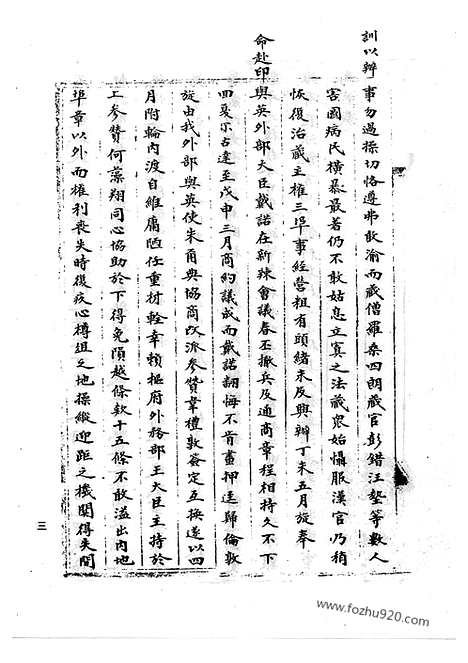 訓以辦事勿過操切恪遵弗敢渝而藏僧羅桑四朗藏官彭錯汪墊等數人
害國病民橫暴最著仍不敢姑息立寘之法藏衆始懾服漢官乃稍
恢復治藏主權三埠事經營粗有頭緒未及興辦丁未五月旋奉
命赴印與英外部大臣戴諾在新辣會議春丕撤兵及通商章程相持久不下
四更示古達至戊申三月商約議成而戴諾翻悔不肯畫押逕歸倫敦
旋由我外部與英使朱爾典協商改派參贊韋禮敦簽定互換遂以四
月附輪內渡自維庸陋任重材輇幸賴樞府外務部王大臣主持於
上參贊何藻翔同心協助於下得免隕越條款十五條不敢溢出內地
埠章以外而權利喪失時復疚心樽俎之地操縱迎距之機關得失間
三
www.fozhu920.com